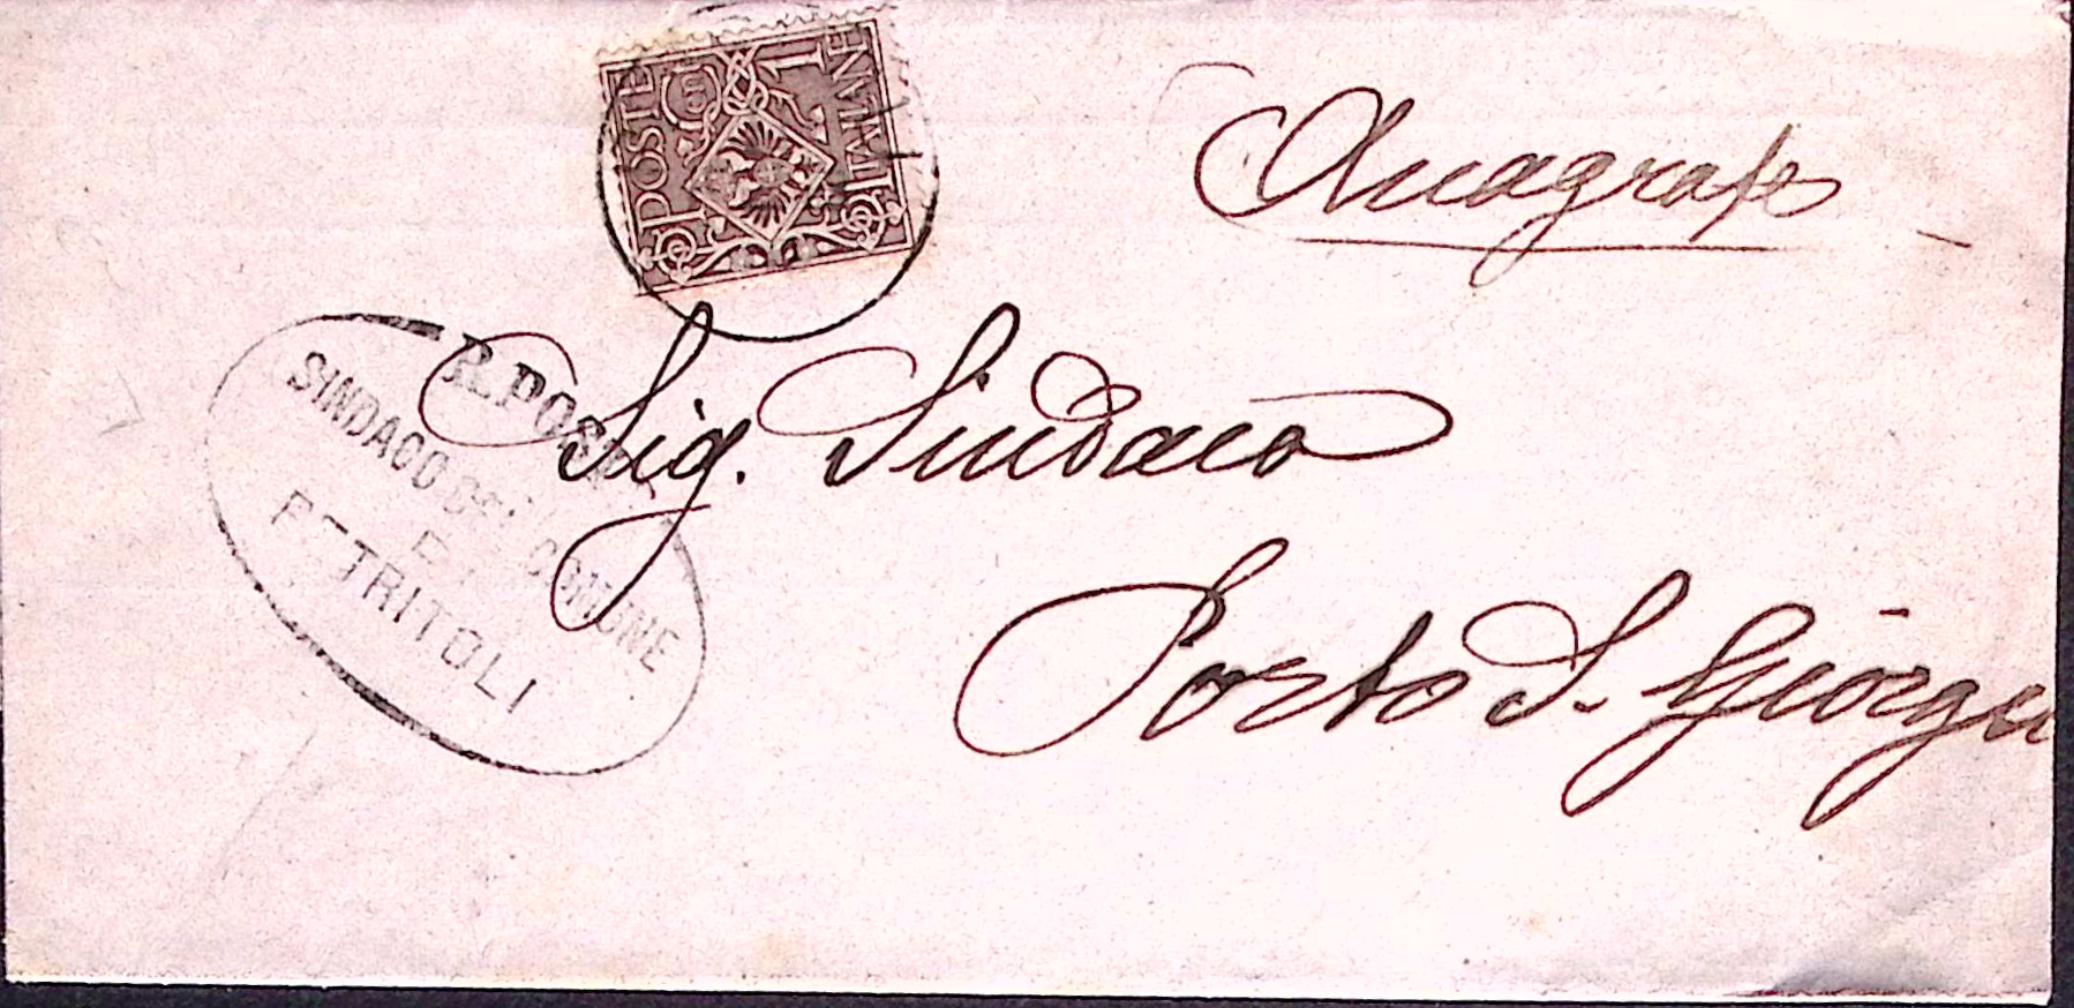 POSTE ITALIANE
Cen 1
Anagrafe
Sig. Sindaco
Porto S. Giorgio
R. POSTE
SINDACO DEL COMUNE
DI
PETRITOLI